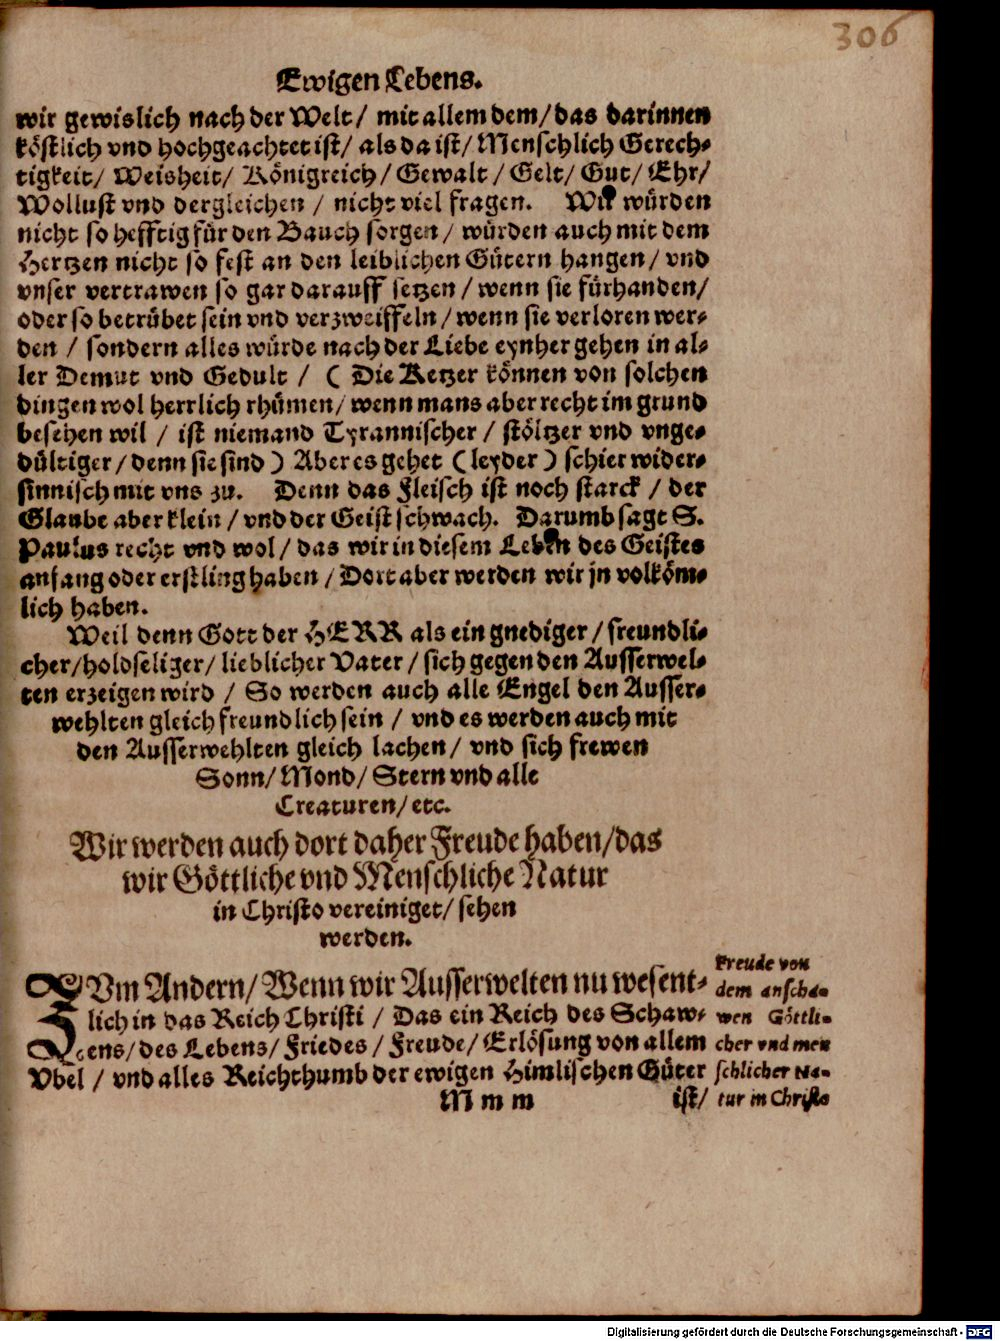 306
Ewigen Lebens.
wir gewislich nach der Welt/ mit allem dem/ das darinnen
köstlich vnd hochgeachtet ist/ als da ist/ Menschlich Gerech-
tigkeit/ Weisheit/ Königreich/ Gewalt/ Gelt/ Gut/ Ehr/
Wollust vnd dergleichen/ nicht viel fragen. Wir würden
nicht so hefftig für den Bauch sorgen/ würden auch mit dem
Hertzen nicht so fest an den leiblichen Gütern hangen/ vnd
vnser vertrawen so gar darauff setzen/ wenn sie fürhanden/
oder so betrübet sein vnd verzweiffeln/ wenn sie verloren wer-
den/ sondern alles würde nach der Liebe eynher gehen in al-
ler Demut vnd Gedult/ ( Die Ketzer können von solchen
dingen wol herrlich rhümen/ wenn mans aber recht im grund
besehen wil/ ist niemand Tyrannischer/ stöltzer vnd vnge-
dültiger/ denn sie sind ) Aber es gehet ( leyder ) schier wider-
sinnisch mit vns zu. Denn das Fleisch ist noch starck/ der
Glaube aber klein/ vnd der Geist schwach. Darumb sagt S.
Paulus recht vnd wol/ das wir in diesem Leben des Geistes
anfang oder erstling haben/ Dort aber werden wir jn volköm-
lich haben.
Weil denn Gott der HERR als ein gnediger/ freundli-
cher/ holdseliger/ lieblicher Vater/ sich gegen den Ausserwel-
ten erzeigen wird/ So werden auch alle Engel den Ausser-
wehlten gleich freundlich sein/ vnd es werden auch mit
den Ausserwehlten gleich lachen/ vnd sich frewen
Sonn/ Mond/ Stern vnd alle
Creaturen/ etc.
Wir werden auch dort daher Freude haben/ das
wir Göttliche vnd Menschliche Natur
in Christo vereiniget/ sehen
werden.
ZVm Andern/ Wenn wir Ausserwelten nu wesent-
lich in das Reich Christi/ Das ein Reich des Schaw-
ens/ des Lebens/ Friedes/ Freude/ Erlösung von allem
Vbel/ vnd alles Reichthumb der ewigen Himlischen Güter
Freude von
dem anscha-
wen Göttli-
cher vnd men
schlicher Na-
tur in Christo
M m m
ist/
Digitalisierung gefördert durch die Deutsche Forschungsgemeinschaft - DFG